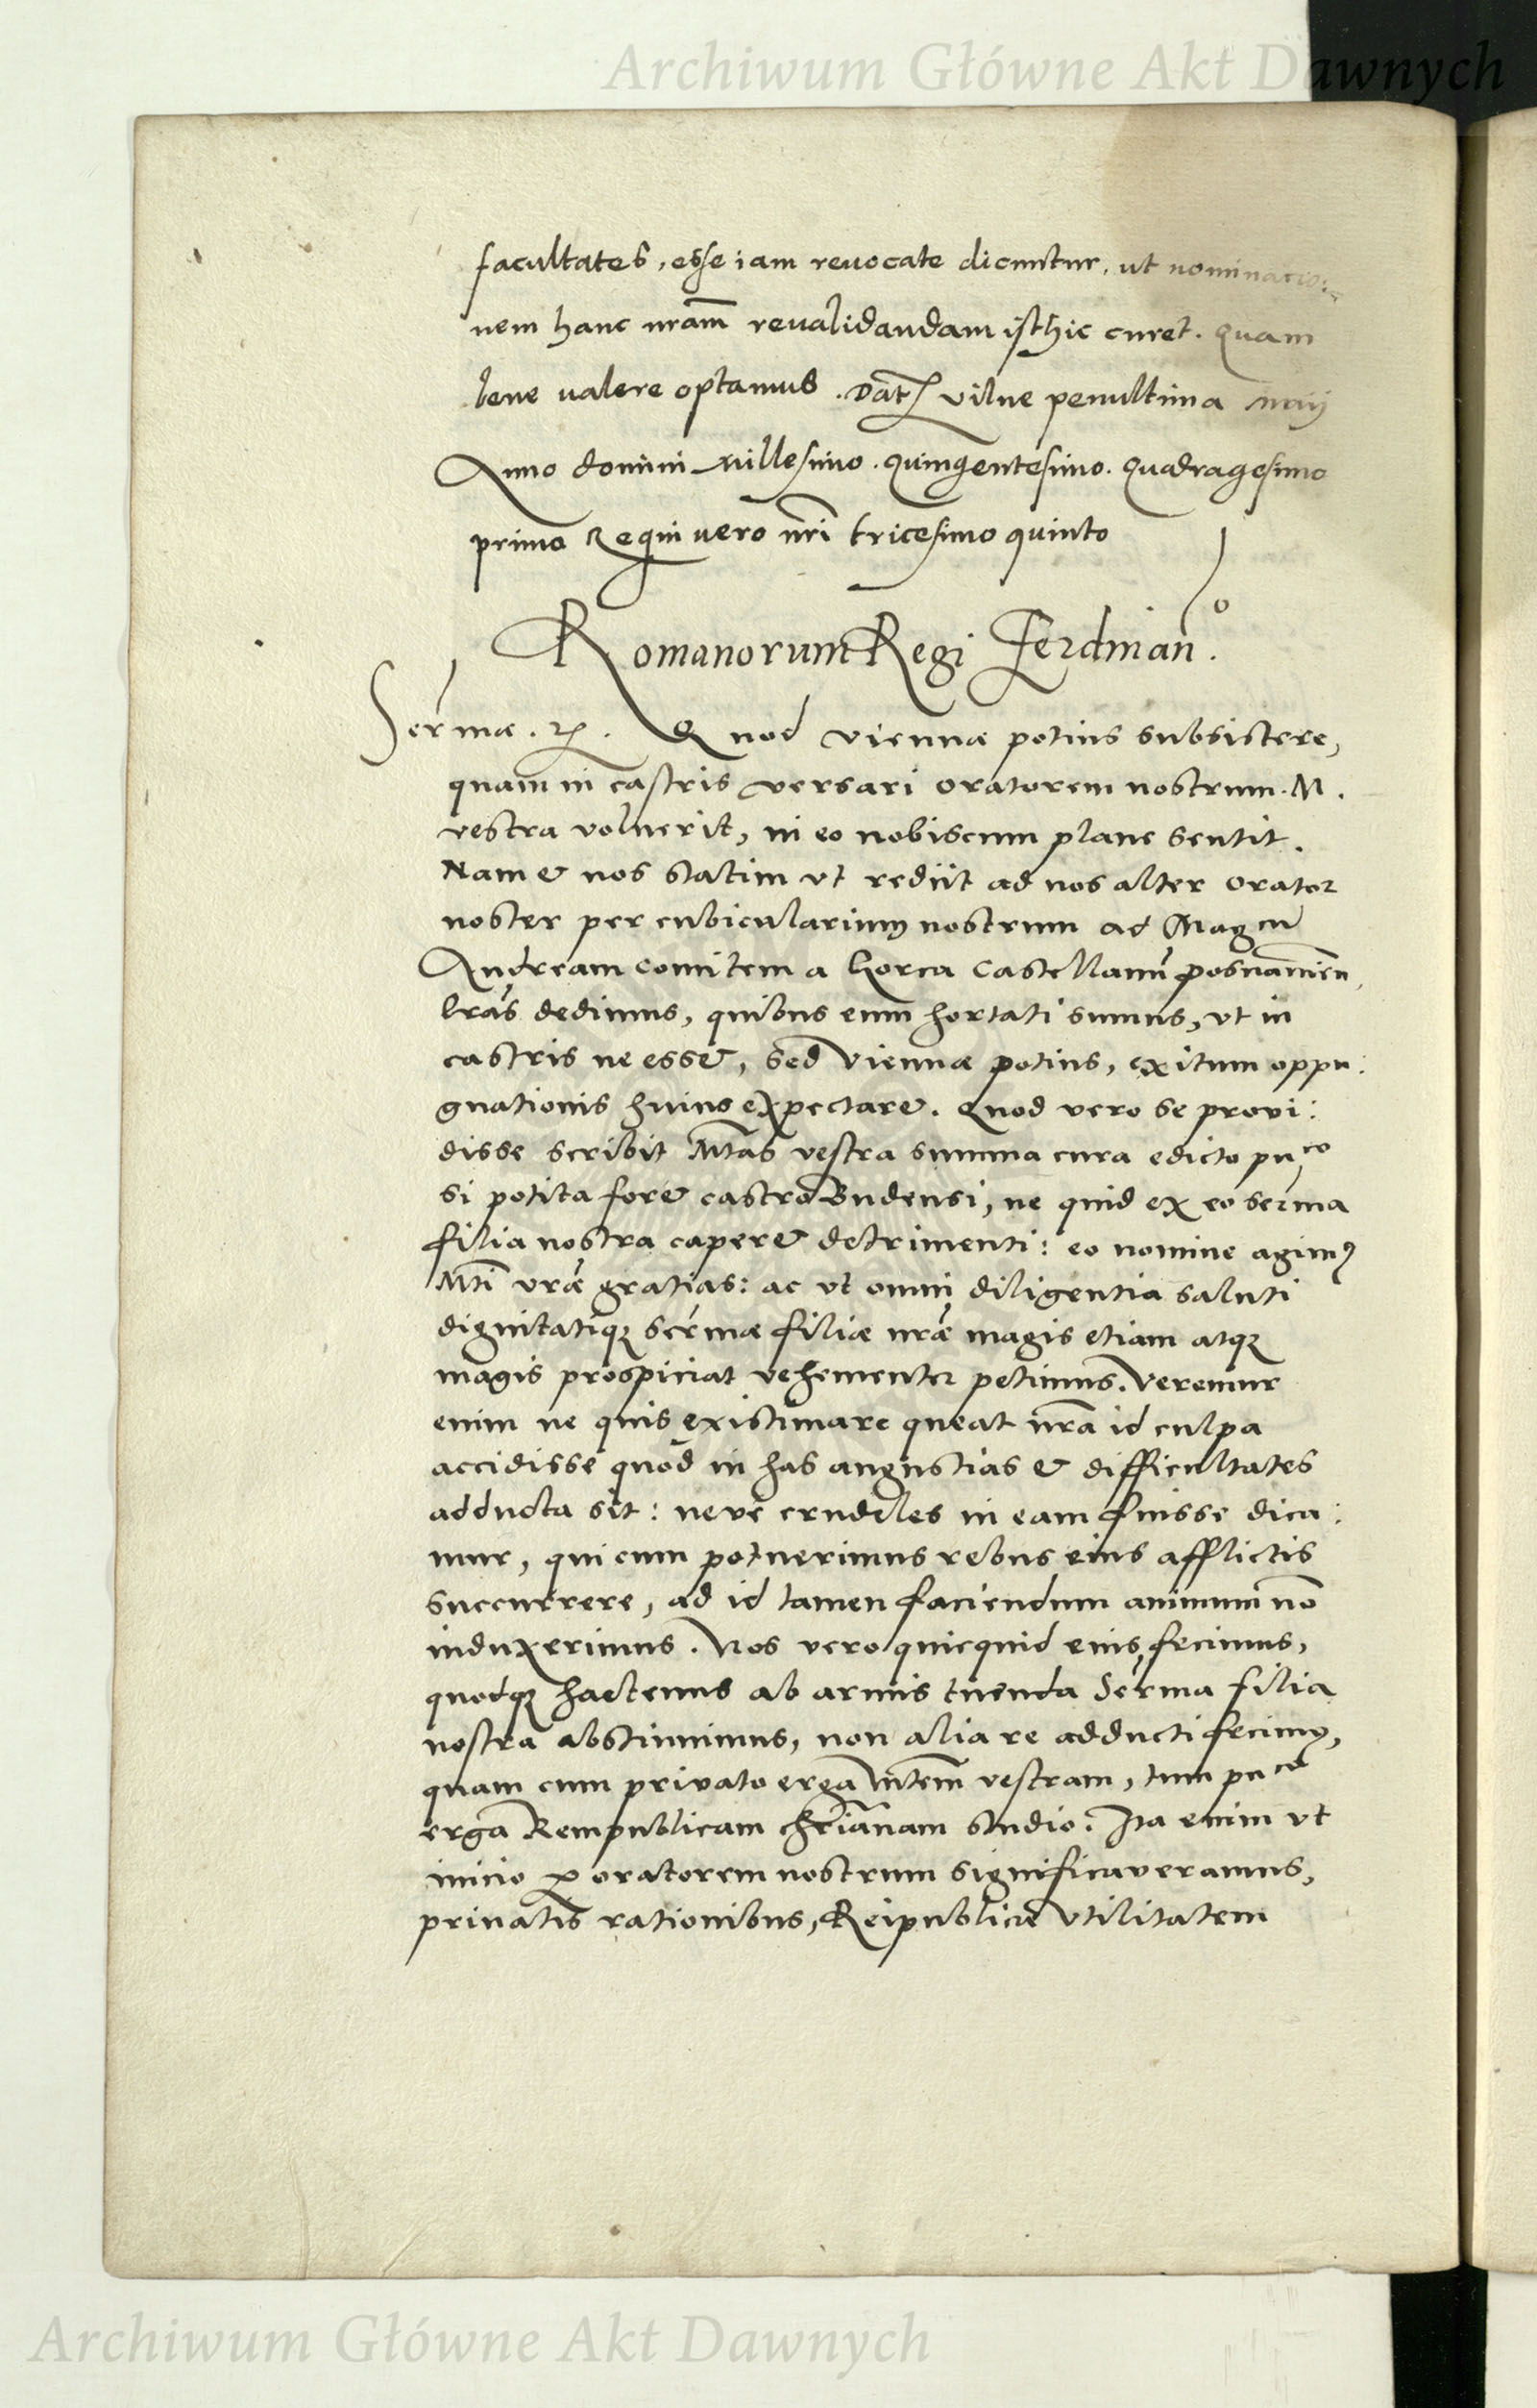 Archiwum Główne Akt Dawnych
facultates, esse iam reuocate dicuntur, ut nominacio:
nem hanc nrãm reualidandam isthic curet. Quam
bene ualere optamus. Dat vilne penultima maij
Anno domini Millesimo. quingentesimo. Quadragesimo
primo Regni uero nrĩ tricesimo quinto
Romanorum Regi Ferdinanº.
Serma. . Quod viennæ potius subsistere,
quam in castris versari oratorem nostrum. M.
vestra voluerit, in eo nobiscum plane sentit.
Nam & nos statim vt rediit ad nos alter orator
noster per cubicularium nostrum ad Magcu
Andream comitem a Gorca Castellanũ posnaniẽn,
lrãs dedimus, quibus eum hortati sumus, vt in
castris ne esset, sed Viennæ potius, exitum oppu:
gnationis huius expectaret. Quod vero se provi:
disse scribit Mtas vestra summa cura edicto puco
si potita foret castro Budensi, ne quid ex eo serma
filia nostra caperet detrimenti: eo nomine agimꝰ
Mti vræ gratias: ac vt omni diligentia saluti
dignitatiqꝫ sermæ filiæ nræ magis etiam atqꝫ
magis prospiciat vehementer petimus. Veremur
enim ne quis existimare queat nrã id culpa
accidisse quod in has angustias & difficultates
adducta sit: neve crudeles in eam fuisse dica:
mur, qui cum potuerimus rebus eius afflictis
succurrere, ad id tamen faciendum animum nõ
induxerimus. Nos vero quicquid eius fecimus,
quodqꝫ hactenus ab armis tuenda Serma filia
nostra abstinuimus, non alia re adducti fecimꝰ,
quam cum privato erga Mtem vestram, tum puco
erga Rempublicam chrianam studio. Ita enim vt
inicio ꝑ oratorem nostrum significaveramus,
privatis rationibus, Reipublicæ vtilitatem
Archiwum Główne Akt Dawnych